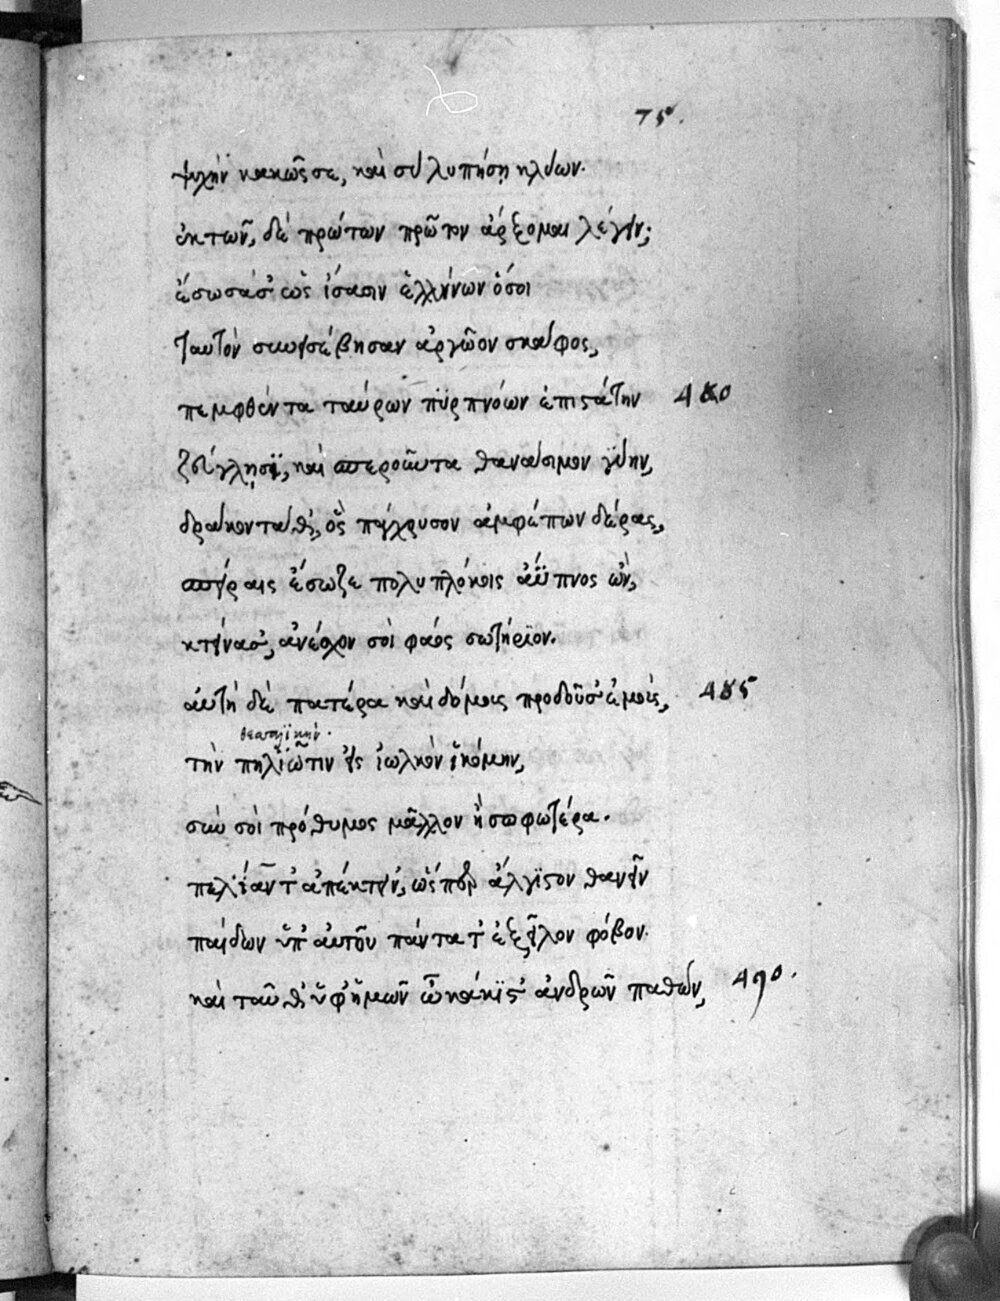 75.
ψυχὴν κακῶς σε, καὶ σὺ λυπήσῃ κλύων.
ἐκ τῶν, δὲ πρώτων πρῶτον ἄρξομαι λέγειν;
ἔσωσά σ' ὡς ἴσασιν ἑλλήνων ὅσοι
ταυτὸν συνεισέβησαν ἀργῶον σκάφος,
πεμφθέντα ταύρων πϋρπνόων ἐπιστάτην 480
ζεύγλησϊ, καὶ σπεροῦντα θανάσιμον γύην,
δράκοντά θ', ὃς πάγχρυσον ἀμφέπων δέρας,
σπείραις ἔσωζε πολυπλόκοις ἄϋπνος ὢν,
κτείνασ', ἀνέσχον σοὶ φάος σωτήριον.
αὐτὴ δὲ πατέρα καὶ δόμους προδοῦσ' ἐμοὺς, 485
θεσσαλικὴν.
τὴν πηλϊῶτιν εἰς ἰωλκὸν ἱκόμην,
σὺν σοὶ πρόθυμος μᾶλλον ἢ σοφωτέρα.
πελίαν τ' ἀπέκτειν', ὥσπερ ἄλγιστον θανεῖν
παίδων ὑπ' αὐτοῦ πάντα τ' ἐξεῖλον φόβον.
καὶ ταῦθ' ὑφ' ἡμῶν ὦ κάκιστ' ἀνδρῶν παθὼν, 490.